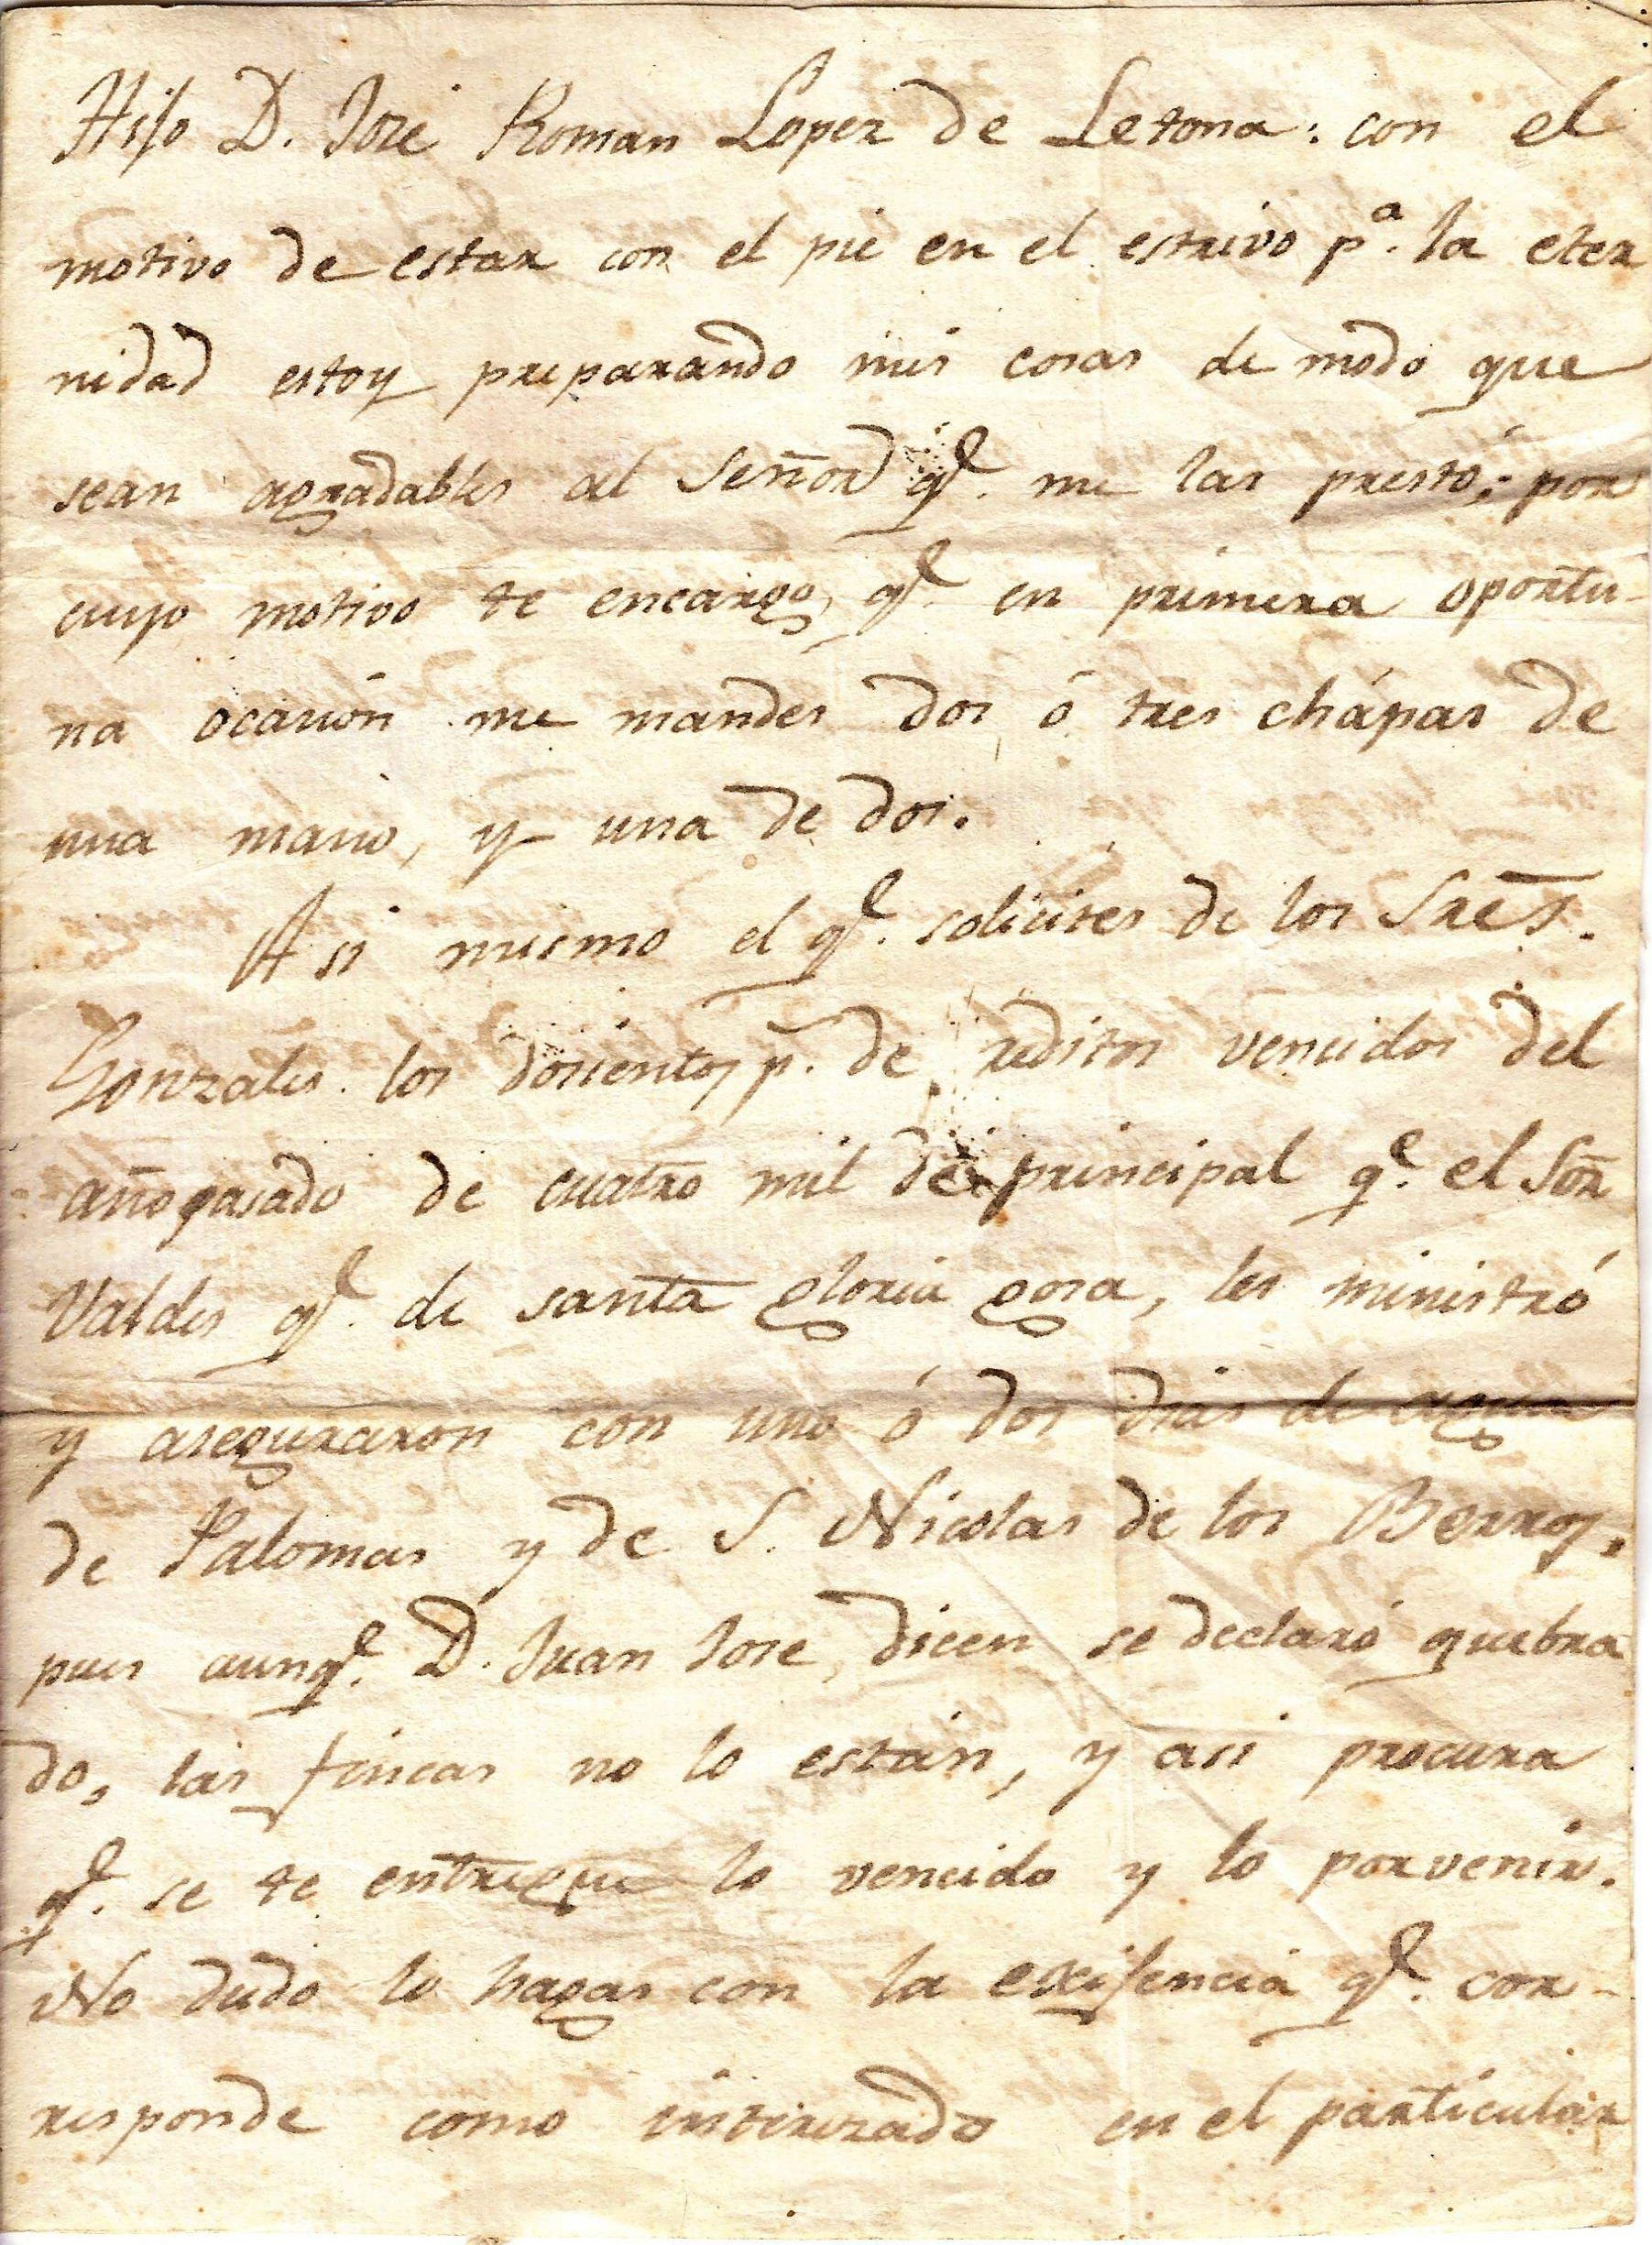 Hijo D. José Roman Lopez de Letona: con el
motivo de estar con el pie en el estrivo pª. la eter
nidad estoy preparando mis cosas de modo que
sean agradables al Señor qᵉ. me las prestó; por
cuyo motivo te encargo, qᵉ. en primera oportu-
na ocasión me mandes dos ó tres chápas de
una mano, y una de dos.
Asi mismo el qᵉ. solicites de los Sres.
Gonzales los doscientos p. de reditos vencidos del
año pasado de cuatro mil de principal qᵉ. el Sor
Valdes qᵉ. de santa gloria gosa, les ministró
y aseguraron con uno ó dos dias de agua
de Palomas y de S. Nicolas de los Berros,
pues aunqᵉ. D. Juan Jose, dicen se declaró quebra
do, las fincas no lo están, y asi procura
qᵉ. se te entregue lo vencido y lo porvenir.
No dudo lo hagas con la exijencia qᵉ. cor-
responde como interezado en el particular